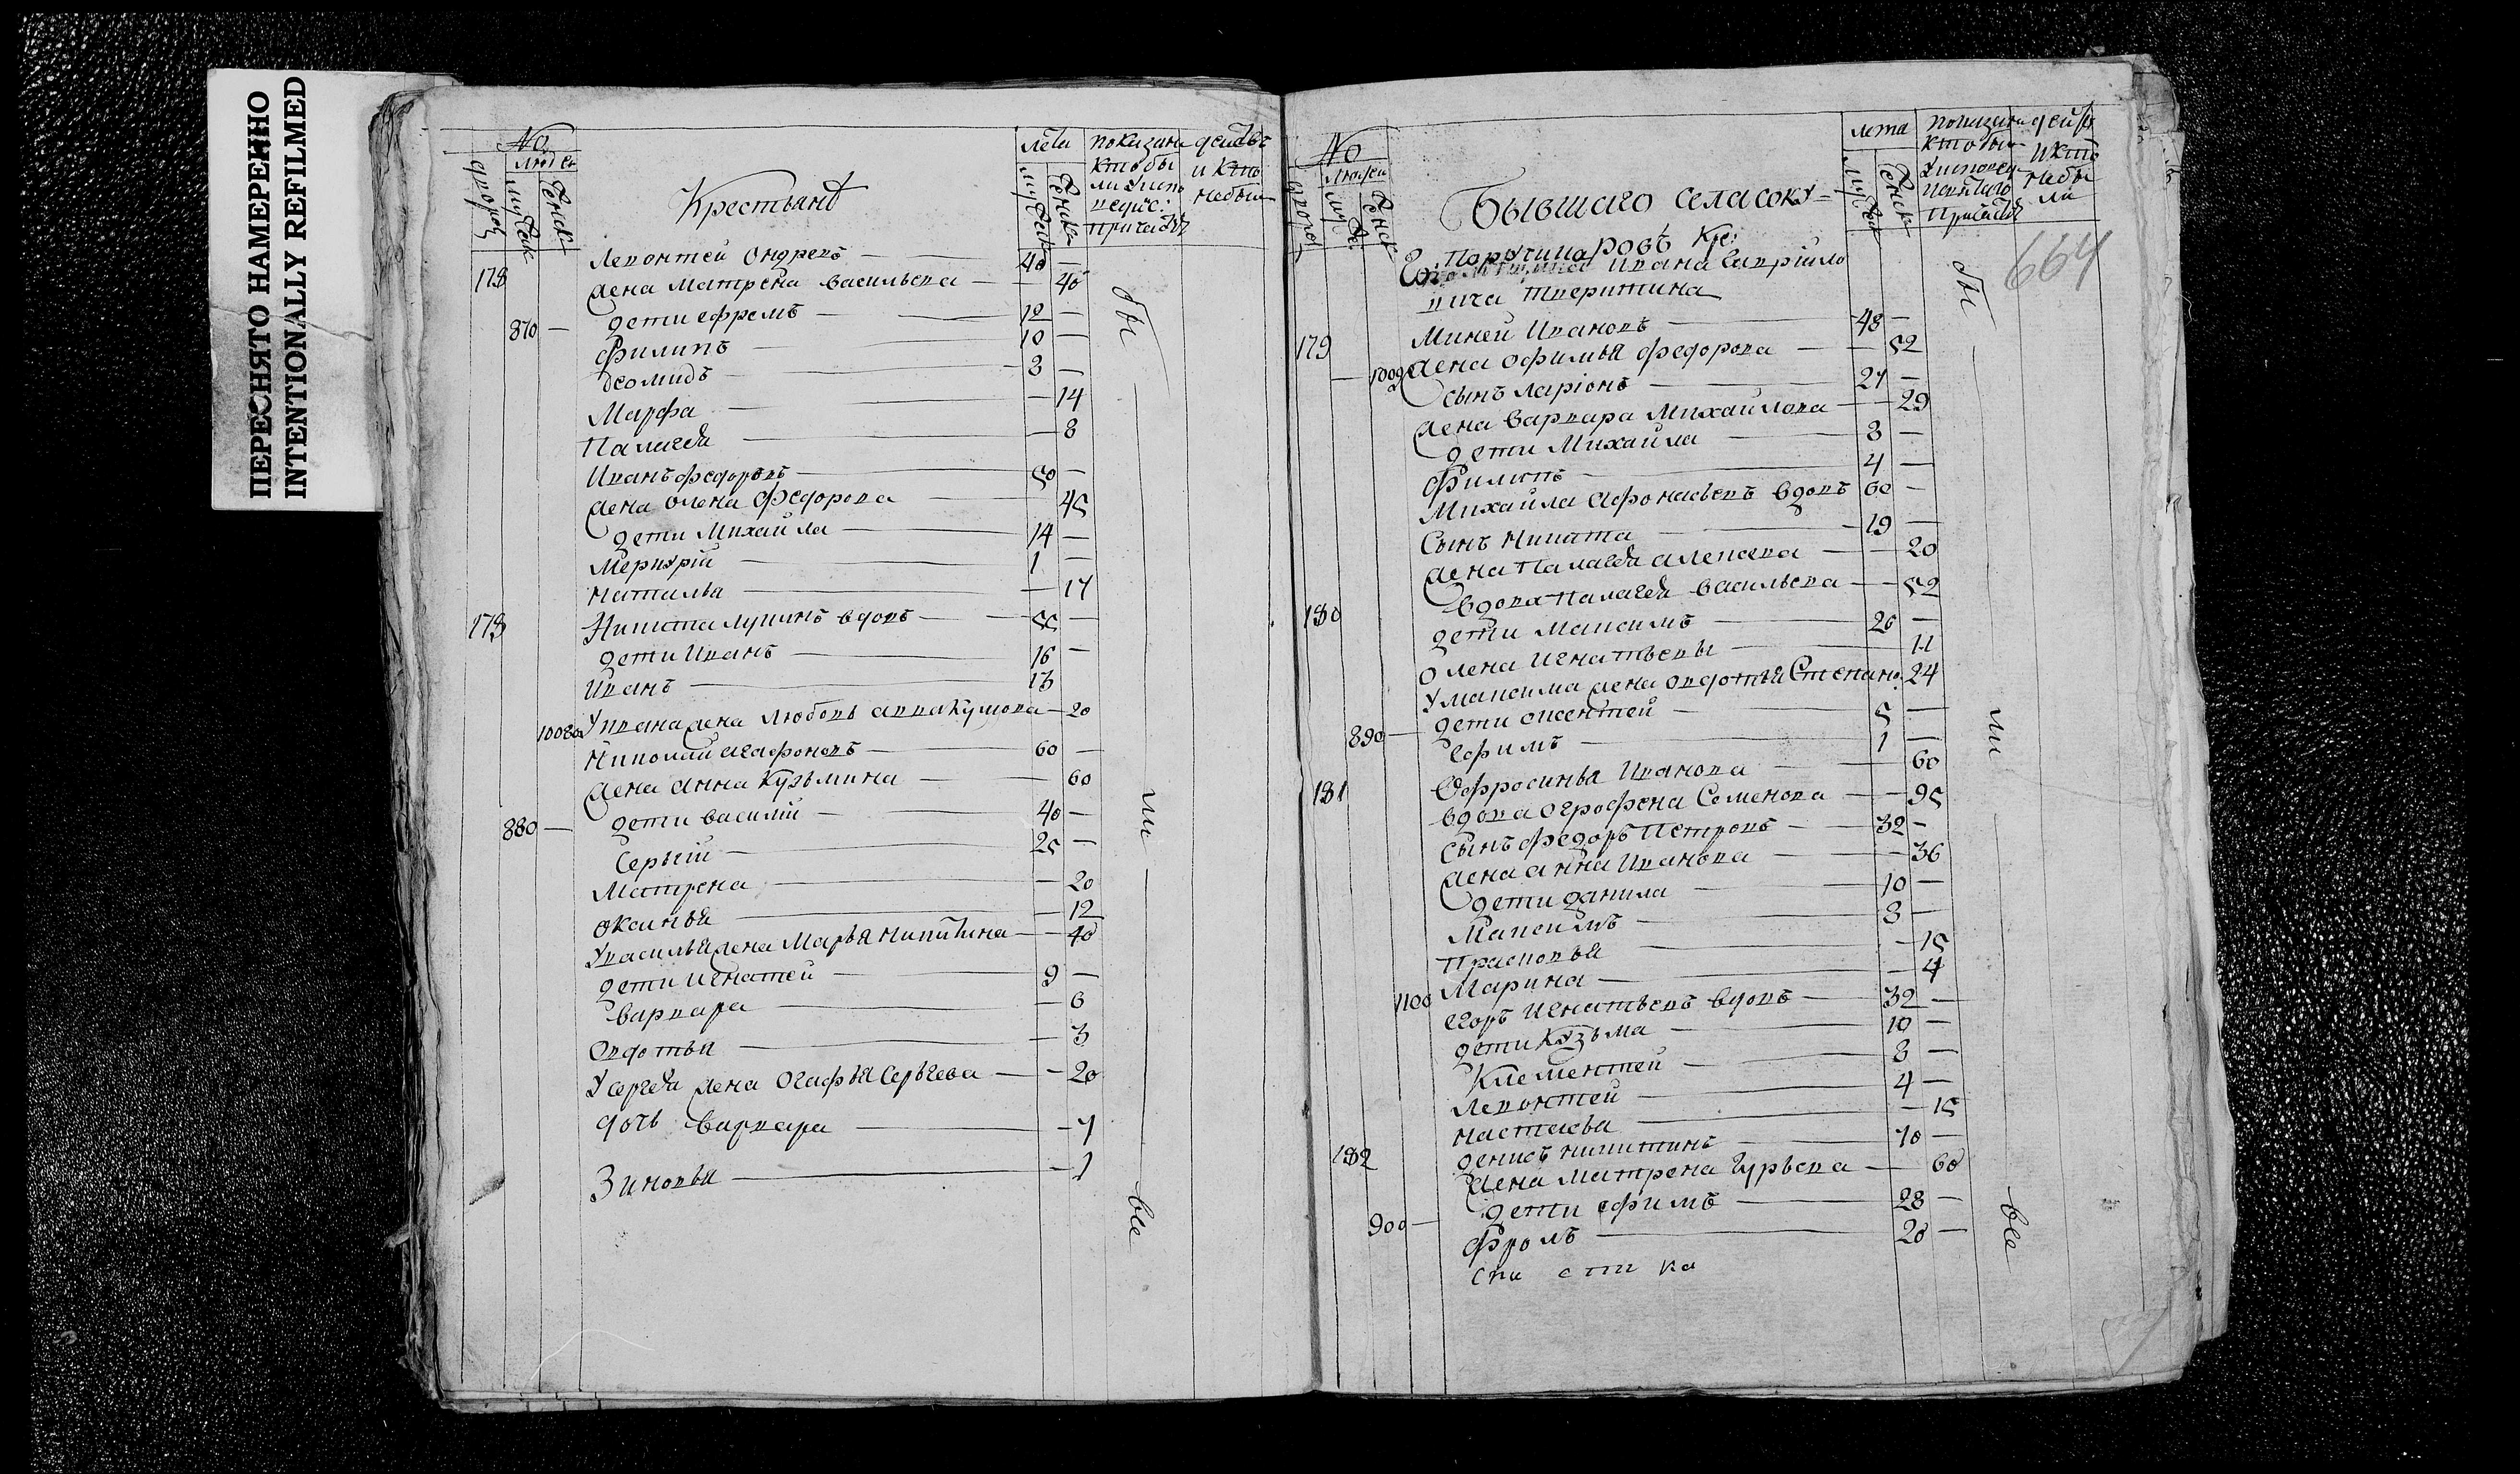 ПЕРЕСНЯТО НАМЕРЕННО
INTENTIONALLY REFILMED
No
дворов
людей
муж
женск
Крестьянъ
лета
муж
женск
показание действ
кто бы и кто
ли у испо небыл
веди:
причастя
Левонтей Ондревъ — 40 —
178 жена Матрена Васильева — — 40
870 — дети Ефремъ — 12 —
Филипъ — 10 —
Деомидъ — 3 —
Марфа — — 14
Палагея — — 8
Иванъ Федоровъ — 50 —
жена Олена Федорова — 45
дети Михайла — 14 —
Меркурій — 1 —
Наталья — — 17
178 Никита Лупинъ вдовъ — 55 —
дети Иванъ — 16 —
Иванъ — 13
1080 У Ивана жена Любовь Аввакумова — 20
Николай Агафоновъ — 60 —
жена Анна Кузьмина — — 60
880 — дети Василій — 40 —
Сергій — 25 —
Матрена — — 20
Оксинья — — 12
У Василья жена Марья Никитина — — 40
дети Игнатей — 9 —
Варвара — — 6
Овдотья — — 3
У Сергея жена Огафья Сергеева — — 20
дочь Варвара — — 7
Зиновья — — 1
бы
ли
все
No
дворов
людей
муж
женск
Бывшаго села соку=
лета
муж
женск
показание действ
кто был и кто
у исповеди небы
и святаго ли
причастя
664
Поручика Кре:
Ивана Гаврило
вича Тверитина
179 Миней Ивановъ — 48 —
1090 жена Офимья Федорова — — 52
сынъ Ларіонъ — 27 —
жена Варвара Михайлова — — 29
дети Михайла — 8 —
Филипъ — 4 —
Михайла Афонасьевъ вдовъ 60 —
сынъ Никита — 19 —
жена Палагея Алексева — — 20
180 вдова Палагея Васильева — — 52
дети Максимъ — 20 —
Олена Игнатьевы — 11
У Максима жена Овдотья Степано: 24
890 — дети Оксентей — 5 —
Ефимъ — 1 —
181 Офросинья Иванова — 60
вдова Ографена Семенова — — 95
сынъ Федоръ Петровъ — 32 —
жена Анна Иванова — — 36
дети Данила — 10 —
Максимъ — 8 —
Прасковья — — 15
1100 Марина — — 4
Егоръ Игнатьевъ вдовъ — 32 —
дети Кузьма — 10 —
Клементей — 8 —
Левонтей — 4 —
Настасья — — 15
182 Денисъ Никитинъ — 70 —
жена Матрена Гурьева — 60
900 — дети Ефимъ — 28 —
Фролъ — 20 —
бы
ли
все